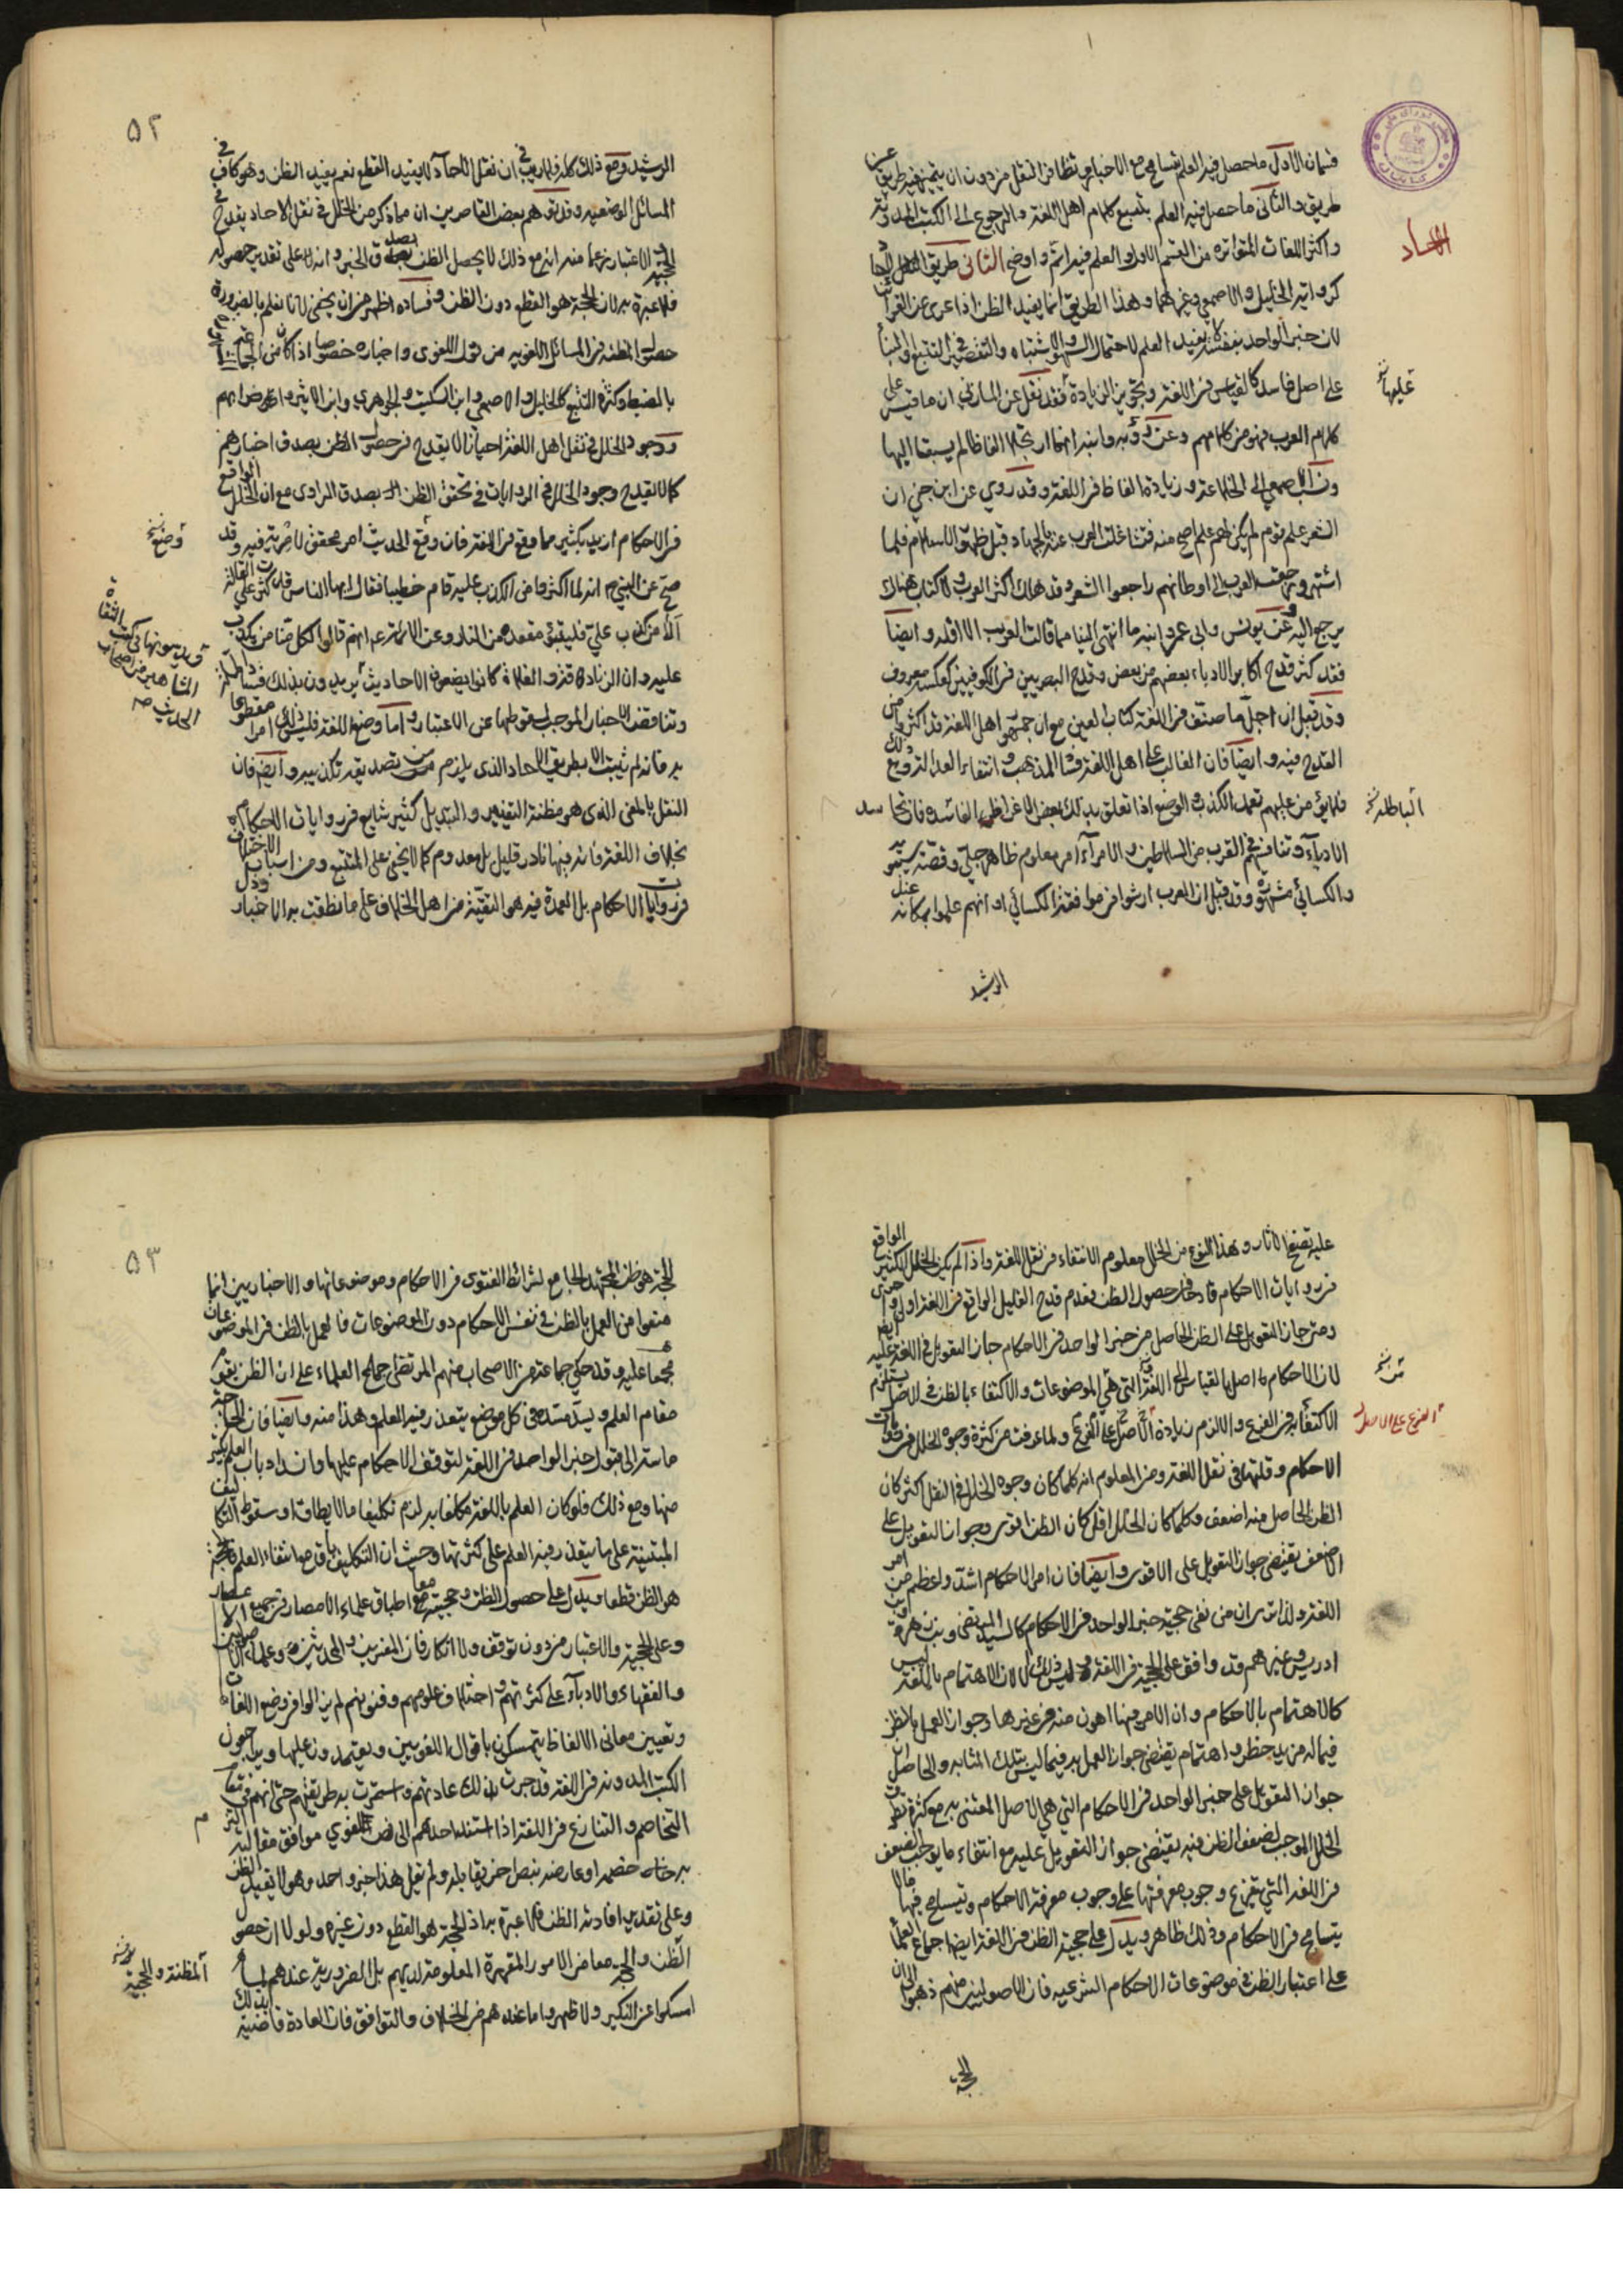 قسمان الاول ما حصل فيه العلم بتسامع الاخبار وتظافر النقل من دون ان يتميز فيه طريق عن
طريق والثاني ما حصل فيه العلم بتتبع كلام اهل اللغة والرجوع الى الكتب المدونة
واكثر اللغات المتواترة من القسم الاول والعلم فيه اتم واوضح الثاني طريق النقل الاحاد
كرواية الخليل والاصمعي وغيرهما وهذا الطريق انما يفيد الظن اذا عرى عن القرائن
لان خبر الواحد بنفسه لا يفيد العلم لاحتمال السهو والاشتباه والتقصير في التتبع والبناء
على اصل فاسد كالقياس في اللغة وتجويز الزيادة فقد نقل عن المازني ان ما قيس على
كلام العرب فهو من كلامهم وعن رؤبه وابيه انهما ارتجلا الفاظا لم يسبقا اليها
ونسب الاصمعي الى الخلاعة وزيادة الفاظ في اللغة وقد روي عن ابن جني ان
الشعر علم قوم لم يكن لهم علم اصح منه فتشاغلت العرب عنه بالجهاد قبل ظهور الاسلام فلما
اشتهر ورجعت العرب الى اوطانهم راجعوا الشعر وقد هلك اكثر العرب ولا كتاب هناك
يرجع اليه وعن يونس وابي عمرو انه ما انتهى الينا مما قالت العرب الا اقله وايضا
فقد كثر قدح اكابر الادباء بعضهم من بعض وقدح البصريين في الكوفيين كعكسه معروف
وقد قيل ان اجل ما صنف في اللغة كتاب العين مع ان جمهور اهل اللغة قد اكثروا من
القدح فيه وايضا فان الغالب على اهل اللغة فساد المذهب وانتفاء العدالة ومع ذلك
فلا يؤمن عليهم تعمد الكذب والوضع اذا تعلق بذلك بعض الاغراض الفاسدة فان تحاسد
الادباء وتنافسهم في القرب من السلاطين والامراء امر معلوم ظاهر جلي وقصة سيبويه
والكسائي مشهورة وقد قيل ان العرب ارشوا في موافقة الكسائي او انهم علموا بمكانه عند
الرشيد
الاحاد
عليها
الباطلة
٥٢
الرشيد ومع ذلك كله فلا ريب في ان نقل الاحاد لا يفيد القطع نعم يفيد الظن وهو كاف في
المسائل الوضعيه وقد توهم بعض القاصرين ان ما ذكر من الخلل في نقل الاحاد يقدح في
الحجية والاعتبار زعما منه انه مع ذلك لا يحصل الظن بصدق الخبر وانه على تقدير حصوله
فلا عبرة به لان الحجة هو القطع دون الظن وفساده اظهر من ان يخفى لانا نعلم بالضرورة
حصول المظنه في المسائل اللغويه من قول اللغوى واخباره خصوصا اذا كان من
بالضبط وكثرة التتبع كالخليل والاصمعي وابن السكيت والجوهري وابن الاثير واضرابهم
ووجود الخلل في نقل اهل اللغة احيانا لا يقدح في حصول الظن بصدق اخبارهم
كما لا يقدح وجود الخلل في الروايات في تحقق الظن بصدق الراوى مع ان الخلل الواقع
في الاحكام ازيد بكثير مما وقع في اللغة فان وقع الحديث امر محقق لا مرية فيه وقد
صح عن النبي ص انه لما اكثروا من الكذب عليه قام خطيبا فقال ايها الناس قد كثرت على القالة
الا من كذب علي فليتبوء مقعده من النار وعن الائمة ع انهم قالوا لكل منا من يكذب
عليه وان الزنادقة والغلاة كانوا يضعون الاحاديث يريدون بذلك
وتناقض الاخبار الموجب لسقوطها عن الاعتبار واما وضع اللغة فليس ذلك امرا مقطوعا
به فانه لم يثبت الا بطريق الاحاد الذى يلزم من تصديقه تكذيبه وايضا فان
النقل بالمعنى الذى هو مظنة التغيير والتبديل كثير شايع في روايات الاحكام
بخلاف اللغة فانه فيها نادر قليل بل معدوم كما لا يخفى على المتتبع ومن اسباب الاختلاف
في روايات الاحكام بل العمدة فيه هو التقية من اهل الخلاف على ما نطقت به الاخبار ودل
وضع
عليه تصفح الاثار وهذا النوع من الخلل معلوم الانتفاء في نقل اللغة واذا لم يكن الخلل الكثير الواقع
في روايات الاحكام قادحا في حصول الظن فعدم قدح القليل الواقع في اللغة اولى واحرى
ومتى جاز التعويل على الظن الحاصل من خبر الواحد في الاحكام جاز التعويل في اللغة عليه ايضا
لان الاحكام اصل بالقياس الى اللغة التي هي الموضوعات والاكتفاء بالظن في الاصل يستلزم
الاكتفاء به في الفرع والا لزم زيادة الاصل على الفرع ولما عرفت من كثرة وجوه الخلل في روايات
الاحكام وقلتها في نقل اللغة ومن المعلوم انه كلما كان وجوه الخلل في النقل اكثر كان
الظن الحاصل منه اضعف وكلما كان الخلل اقل كان الظن اقوى وجواز التعويل على
الاضعف يقتضى جواز التعويل على الاقوى وايضا فان امر الاحكام اشد واعظم من امر
اللغة ولذا ترى ان من نفى حجية خبر الواحد في الاحكام كالسيد المرتضى وبن زهرة وابن
ادريس وغيرهم قد وافق على الحجية في اللغة وليس ذلك الا لان الاهتمام باللغة ليس
كالاهتمام بالاحكام وان الامر فيها اهون منه في غيرها وجواز العمل بالظن
فيما له مزيد خطر واهتمام يقتضى جواز العمل به فيما ليس بتلك المثابه والحاصل
جواز التعويل على خبر الواحد في الاحكام التي هي الاصل المعتنى به مع كثرة تطرق
الخلل الموجب لضعف الظن فيه يقتضى جواز التعويل عليه مع انتفاء ما يوجب الضعف
في اللغة التي يتفرع وجوب معرفتها على وجوب معرفة الاحكام ويتسامح فيها ما لا
يتسامح في الاحكام وذلك ظاهر ويدل على حجية الظن في اللغة ايضا اجماع العلماء
على اعتبار الظن في موضوعات الاحكام الشرعيه فان الاصوليين منهم ذهبوا الى ان
الحجة
الفرع على الاصل
٥٣
الحجة هو ظن المجتهد الجامع لشرائط الفتوى في الاحكام وموضوعاتها والاخباريين انما
منعوا من العمل بالظن في نفس الاحكام دون الموضوعات فالعمل بالظن في الموضوعات
مجمعا عليه وقد حكي جماعة من الاصحاب منهم المرتضى اجماع العلماء على ان الظن يقوم
مقام العلم ويسد مسده في كل موضع يتعذر فيه العلم وهذا منه وايضا فان الحاجة
ماسة الى قبول خبر الواحد في اللغة لتوقف الاحكام عليها وانسداد باب العلم في كثير
منها ومع ذلك فلو كان العلم باللغة مكلفا به لزم تكليف ما لا يطاق او سقوط التكاليف
المبتنية على ما يتعذر فيه العلم على كثرتها وحيث ان التكليف باق مع انتفاء العلم فالحجة
هو الظن قطعا ويدل على حصول الظن وحجيته معا اطباق علماء الامصار في جميع الاعصار
وعلى الحجية والاعتبار من دون توقف ولا انكار فان المفسرين والمحدثين وعلماء الاصوليين
والفقهاء والادباء على كثرتهم واختلاف علومهم وفنونهم لم يزالوا في وضع اللغات
وتعيين معانى الالفاظ يتمسكون باقوال اللغويين ويعتمدون عليها ويراجعون
الكتب المدونه في اللغة قد جرت بذلك عادتهم واستمرت به طريقتهم حتى انهم في مقام
التخاصم والتنازع في اللغة اذا استند احدهم الى نص اللغوي موافق مقالته التزم
به خصمه او عارضه بنص اخر يقابله ولم يقل هذا خبر واحد وهو لا يفيد الظن
وعلى تقدير افادته الظن فلا عبرة به اذ الحجة هو القطع دون غيره ولو لا ان حصول
الظن والحجة معا من الامور المقررة المعلومة لديهم بل الضرورية عندهم لما
امسكوا عن النكير ولاظهروا ما عندهم من الخلاف والتوافق فان العادة قاضية بذلك
المظنة والحجية